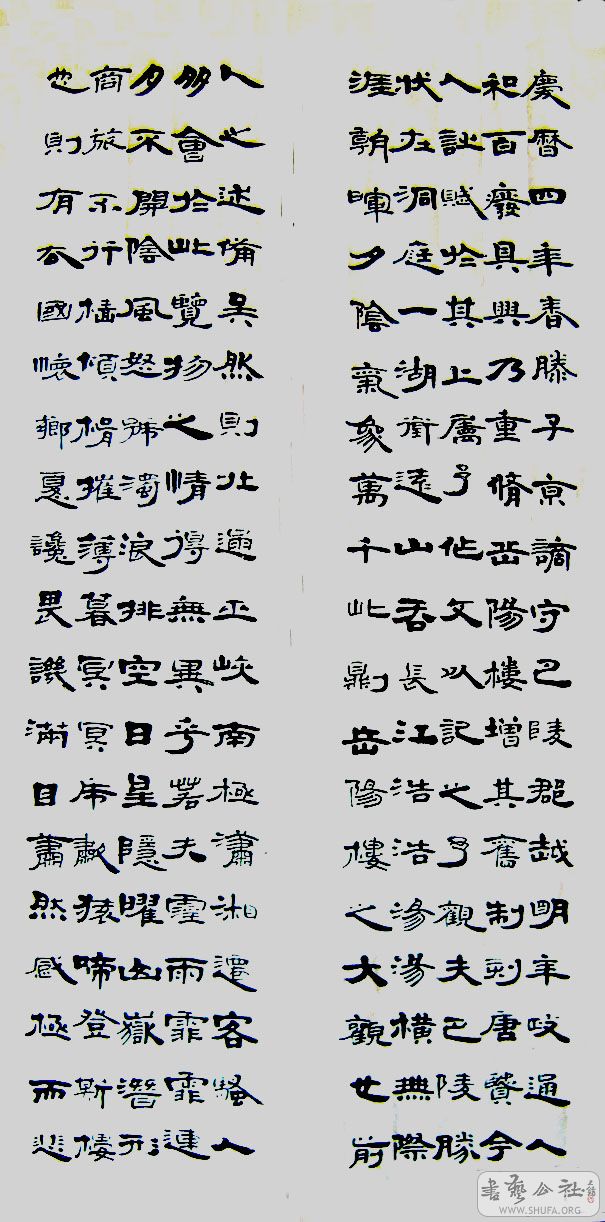 慶曆四年春滕子京謫守巴陵郡越明年政通人
和百廢具興乃重脩岳陽樓增其舊制刻唐賢今
人詩賦於其上屬予作文以記之予觀夫巴陵勝
狀在洞庭一湖銜遠山吞長江浩浩湯湯橫無際
涯朝暉夕陰氣象萬千此則岳陽樓之大觀也前
人之述備矣然則北通巫峽南極瀟湘遷客騷人
多會於此覽物之情得無異乎若夫霪雨霏霏連
月不開陰風怒號濁浪排空日星隱曜山嶽潛形
商旅不行檣傾楫摧薄暮冥冥虎嘯猿啼登斯樓
也則有去國懷鄉憂讒畏譏滿目蕭然感極而悲
書藝公社
WWW.SHUFA.ORG